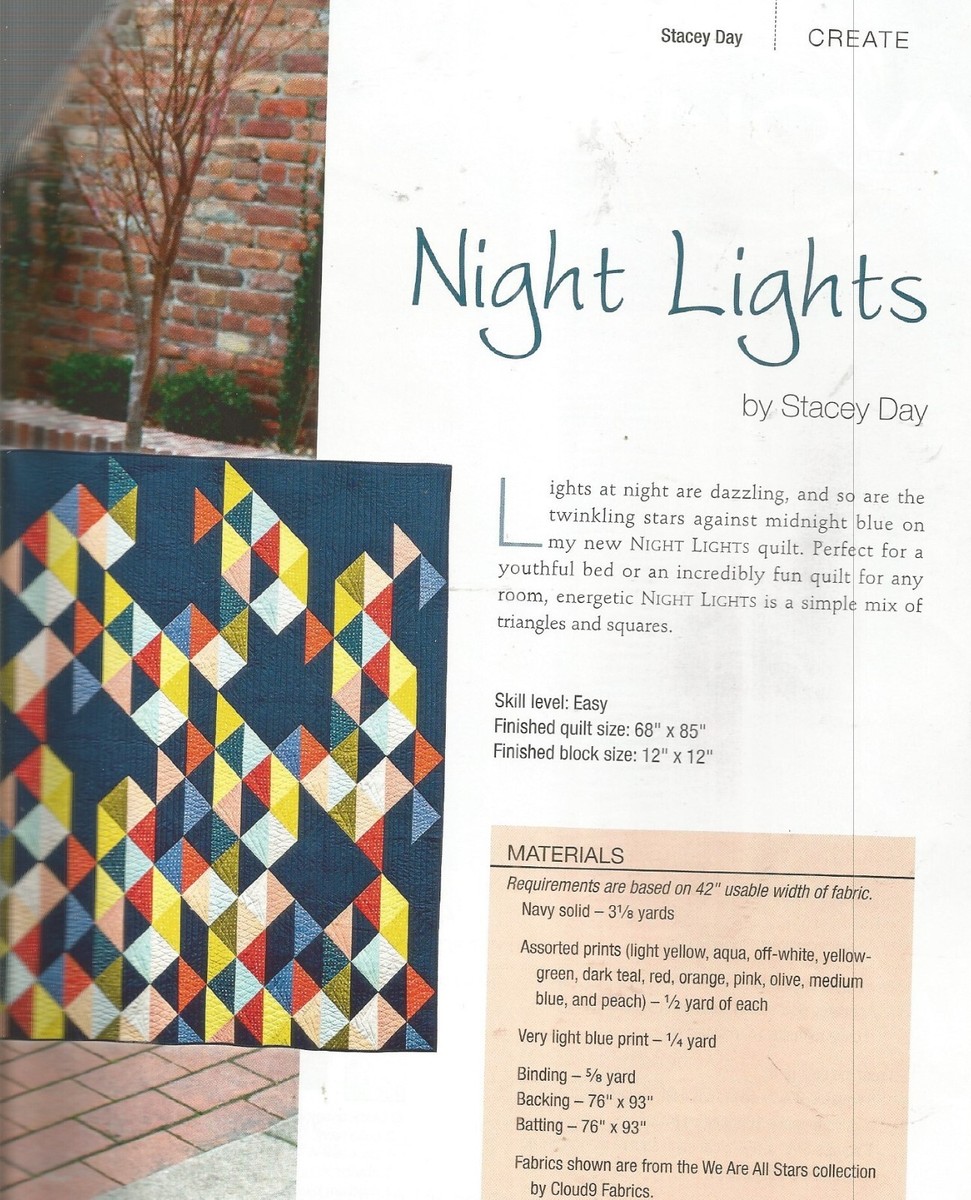 Stacey Day CREATE
Night Lights
by Stacey Day
Lights at night are dazzling, and so are the
twinkling stars against midnight blue on
my new NIGHT LIGHTS quilt. Perfect for a
youthful bed or an incredibly fun quilt for any
room, energetic NIGHT LIGHTS is a simple mix of
triangles and squares.
Skill level: Easy
Finished quilt size: 68" x 85"
Finished block size: 12" x 12"
MATERIALS
Requirements are based on 42" usable width of fabric.
Navy solid – 3⅛ yards
Assorted prints (light yellow, aqua, off-white, yellow-
green, dark teal, red, orange, pink, olive, medium
blue, and peach) – ½ yard of each
Very light blue print – ¼ yard
Binding – ⅝ yard
Backing – 76" x 93"
Batting – 76" x 93"
Fabrics shown are from the We Are All Stars collection
by Cloud9 Fabrics.